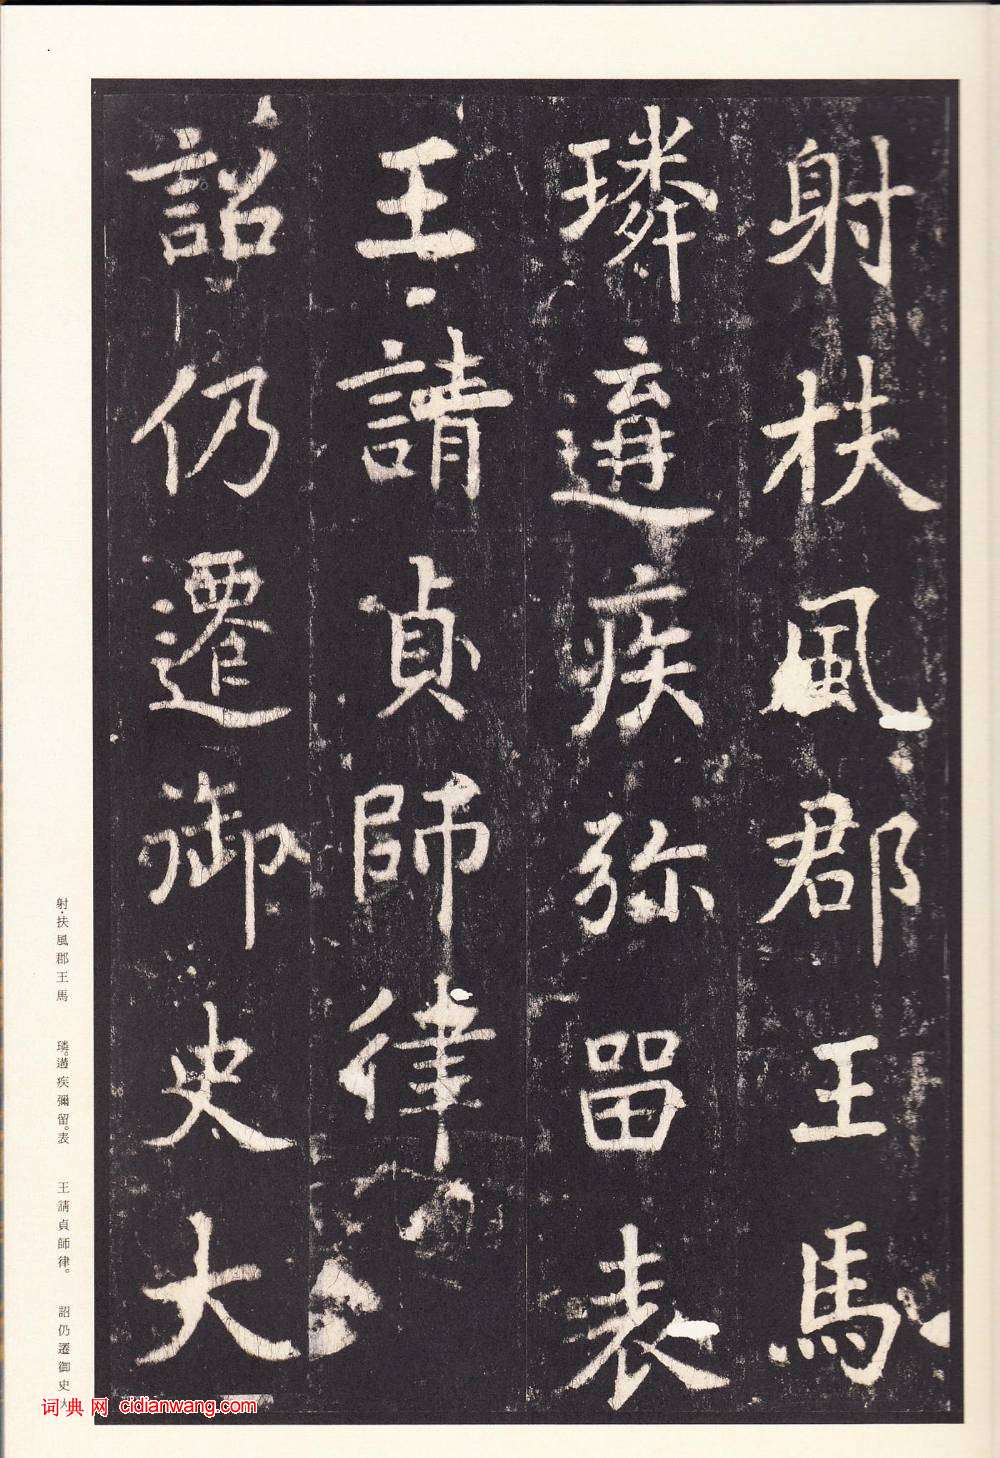 射扶風郡王馬
璘遘疾弥留表
王請貞師律
詔仍遷御史大
射·扶風郡王馬 璘。遘疾彌留。表 王請貞師律。 詔仍遷御史大
词典网 cidianwang.com